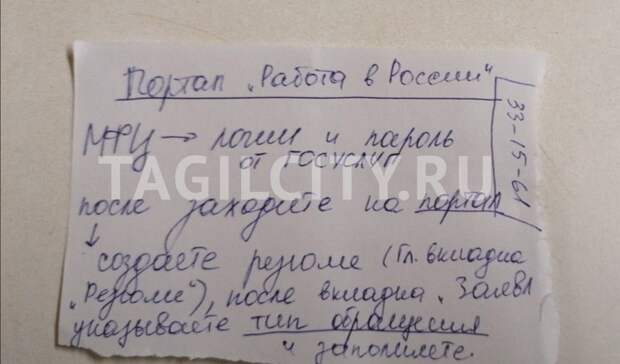 Портал „Работа в России"
33-15-61
МФЦ → логин и пароль
от госуслуг
TAGILCITY.RU
после заходите на портал
↓
создаете резюме (гл. вкладка
„Резюме"), после вкладка „Заявл
указываете тип обращения
и заполняете.